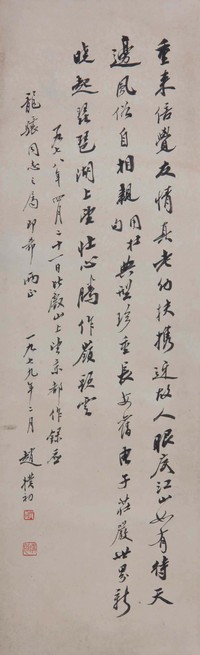 重来倍觉友情真老幼扶携迎故人眼底江山如有待天
边风俗自相亲 同杜句 典型珍重长安旧弟子庄严世界新
晓起琵琶湖上望壮心腾作岭头云
一九七八年四月二十一日比叡山上望京都作录应
同志之属即希两正 一九七九年二月 赵朴初